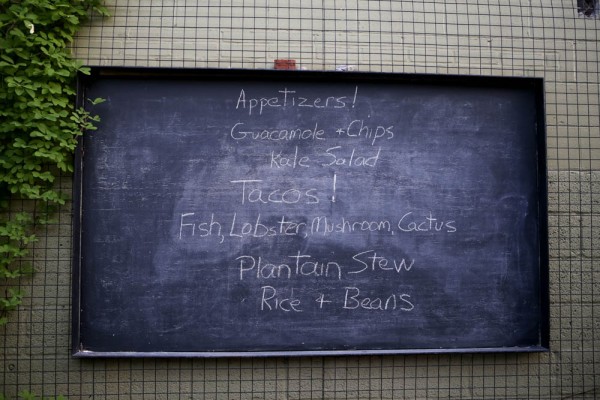 Appetizers!
Guacamole + Chips
Kale Salad
Tacos!
Fish, Lobster, Mushroom, Cactus
Plantain Stew
Rice + Beans